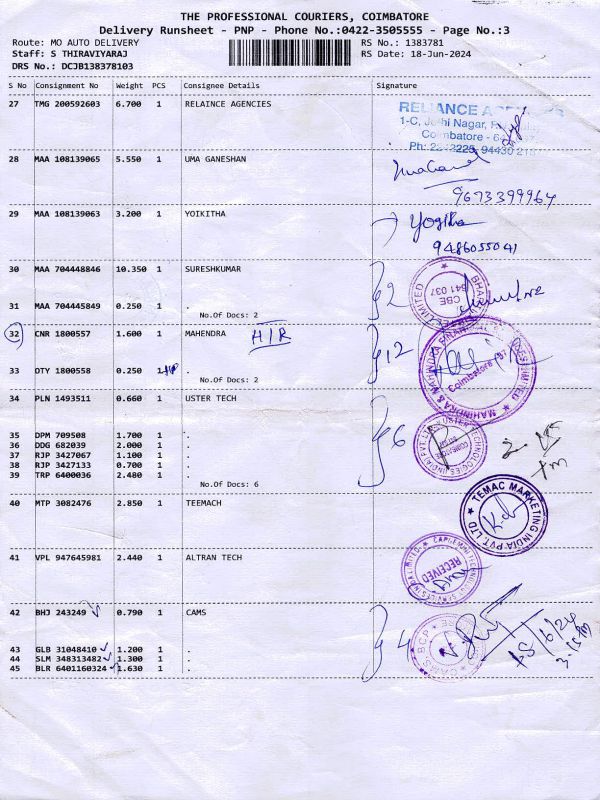 THE PROFESSIONAL COURIERS, COIMBATORE
Delivery Runsheet - PNP - Phone No.:0422-3505555 - Page No.:3
Route: MO AUTO DELIVERY
Staff: S THIRAVIYARAJ
DRS No.: DCJB138378103
RS No.: 1383781
RS Date: 18-Jun-2024
S No Consignment No Weight PCS Consignee Details Signature
27 TMG 200592603 6.700 1 RELAINCE AGENCIES
RELIANCE
1-C, Jothi Nagar,
Coimbatore - 64
28 MAA 108139065 5.550 1 UMA GANESHAN
9673399964
29 MAA 108139063 3.200 1 YOIKITHA
Yogitha
9486055041
30 MAA 704448846 10.350 1 SURESHKUMAR
CBE
641 037
LIMITED
31 MAA 704445849 0.250 1 .
No.Of Docs: 2
2
32 CNR 1800557 1.600 1 MAHENDRA
H/R
12
MAHINDRA & MAHINDRA FINANCIAL SERVICES LIMITED
Coimbatore
33 OTY 1800558 0.250 1 .
No.Of Docs: 2
34 PLN 1493511 0.660 1 USTER TECH
6
USTER TECHNOLOGIES (INDIA) PVT. LTD
35 DPM 709508 1.700 1 .
36 DDG 682039 2.000 1 .
37 RJP 3427067 1.100 1 .
38 RJP 3427133 0.700 1 .
39 TRP 6400036 2.480 1 .
No.Of Docs: 6
40 MTP 3082476 2.850 1 TEEMACH
TEMAC MARKETING INDIA PVT. LTD
41 VPL 947645981 2.440 1 ALTRAN TECH
CAPGEMINI TECHNOLOGY SERVICES INDIA LIMITED
RECEIVED
42 BHJ 243249 0.790 1 CAMS
4
CAMS BCP
18/6/24
3.15pm
43 GLB 31048410 1.200 1 .
44 SLM 348313482 1.300 1 .
45 BLR 6401160324 1.630 1 .